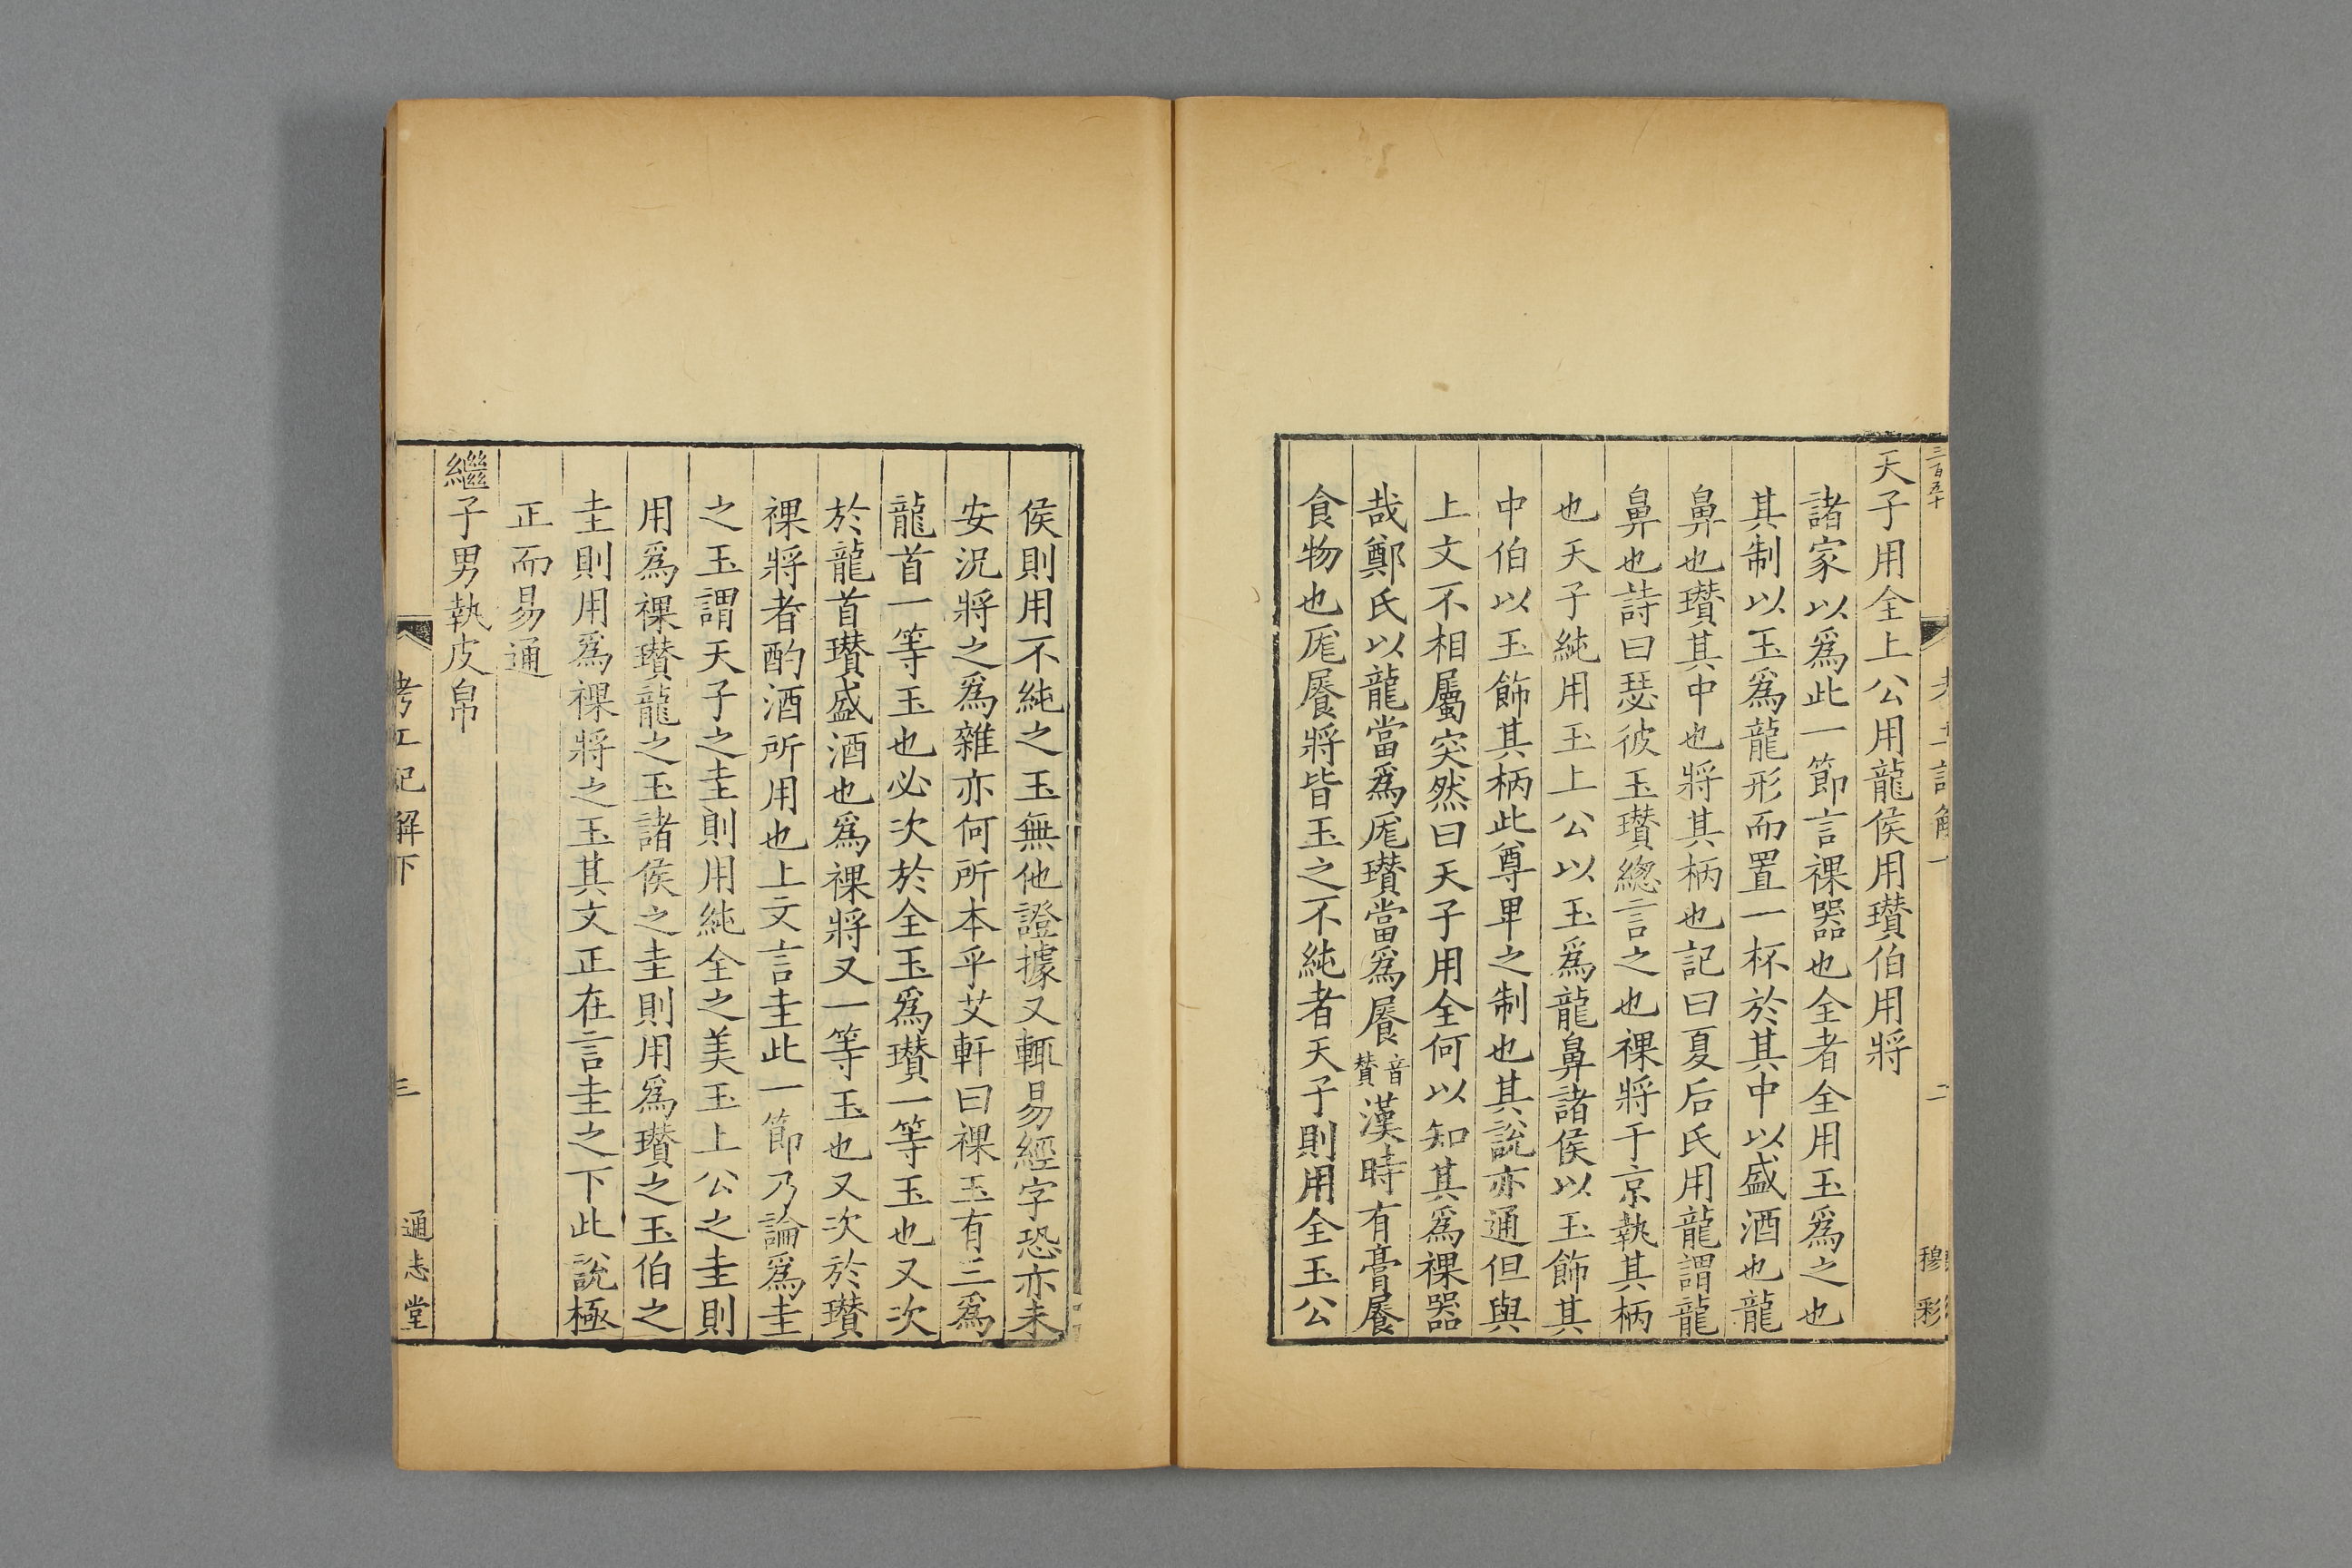 三百五十
二
穆彩
天子用全上公用龍侯用瓚伯用將
諸家以爲此一節言祼器也全者全用玉爲之也
其制以玉爲龍形而置一杯於其中以盛酒也龍
鼻也瓚其中也將其柄也記曰夏后氏用龍謂龍
鼻也詩曰瑟彼玉瓚總言之也祼將于京執其柄
也天子純用玉上公以玉爲龍鼻諸侯以玉飾其
中伯以玉飾其柄此尊卑之制也其說亦通但與
上文不相屬突然曰天子用全何以知其爲祼器
哉鄭氏以龍當爲尨瓚當爲饡音贊漢時有膏饡
食物也尨饡將皆玉之不純者天子則用全玉公
侯則用不純之玉無他證據又輒易經字恐亦未
安況將之爲雜亦何所本乎艾軒曰祼玉有三爲
龍首一等玉也必次於全玉爲瓚一等玉也又次
於龍首瓚盛酒也爲祼將又一等玉也又次於瓚
祼將者酌酒所用也上文言圭此一節乃論爲圭
之玉謂天子之圭則用純全之美玉上公之圭則
用爲祼瓚龍之玉諸侯之圭則用爲瓚之玉伯之
圭則用爲祼將之玉其文正在言圭之下此說極
正而易通
繼子男執皮帛
考工記解下
三
通志堂